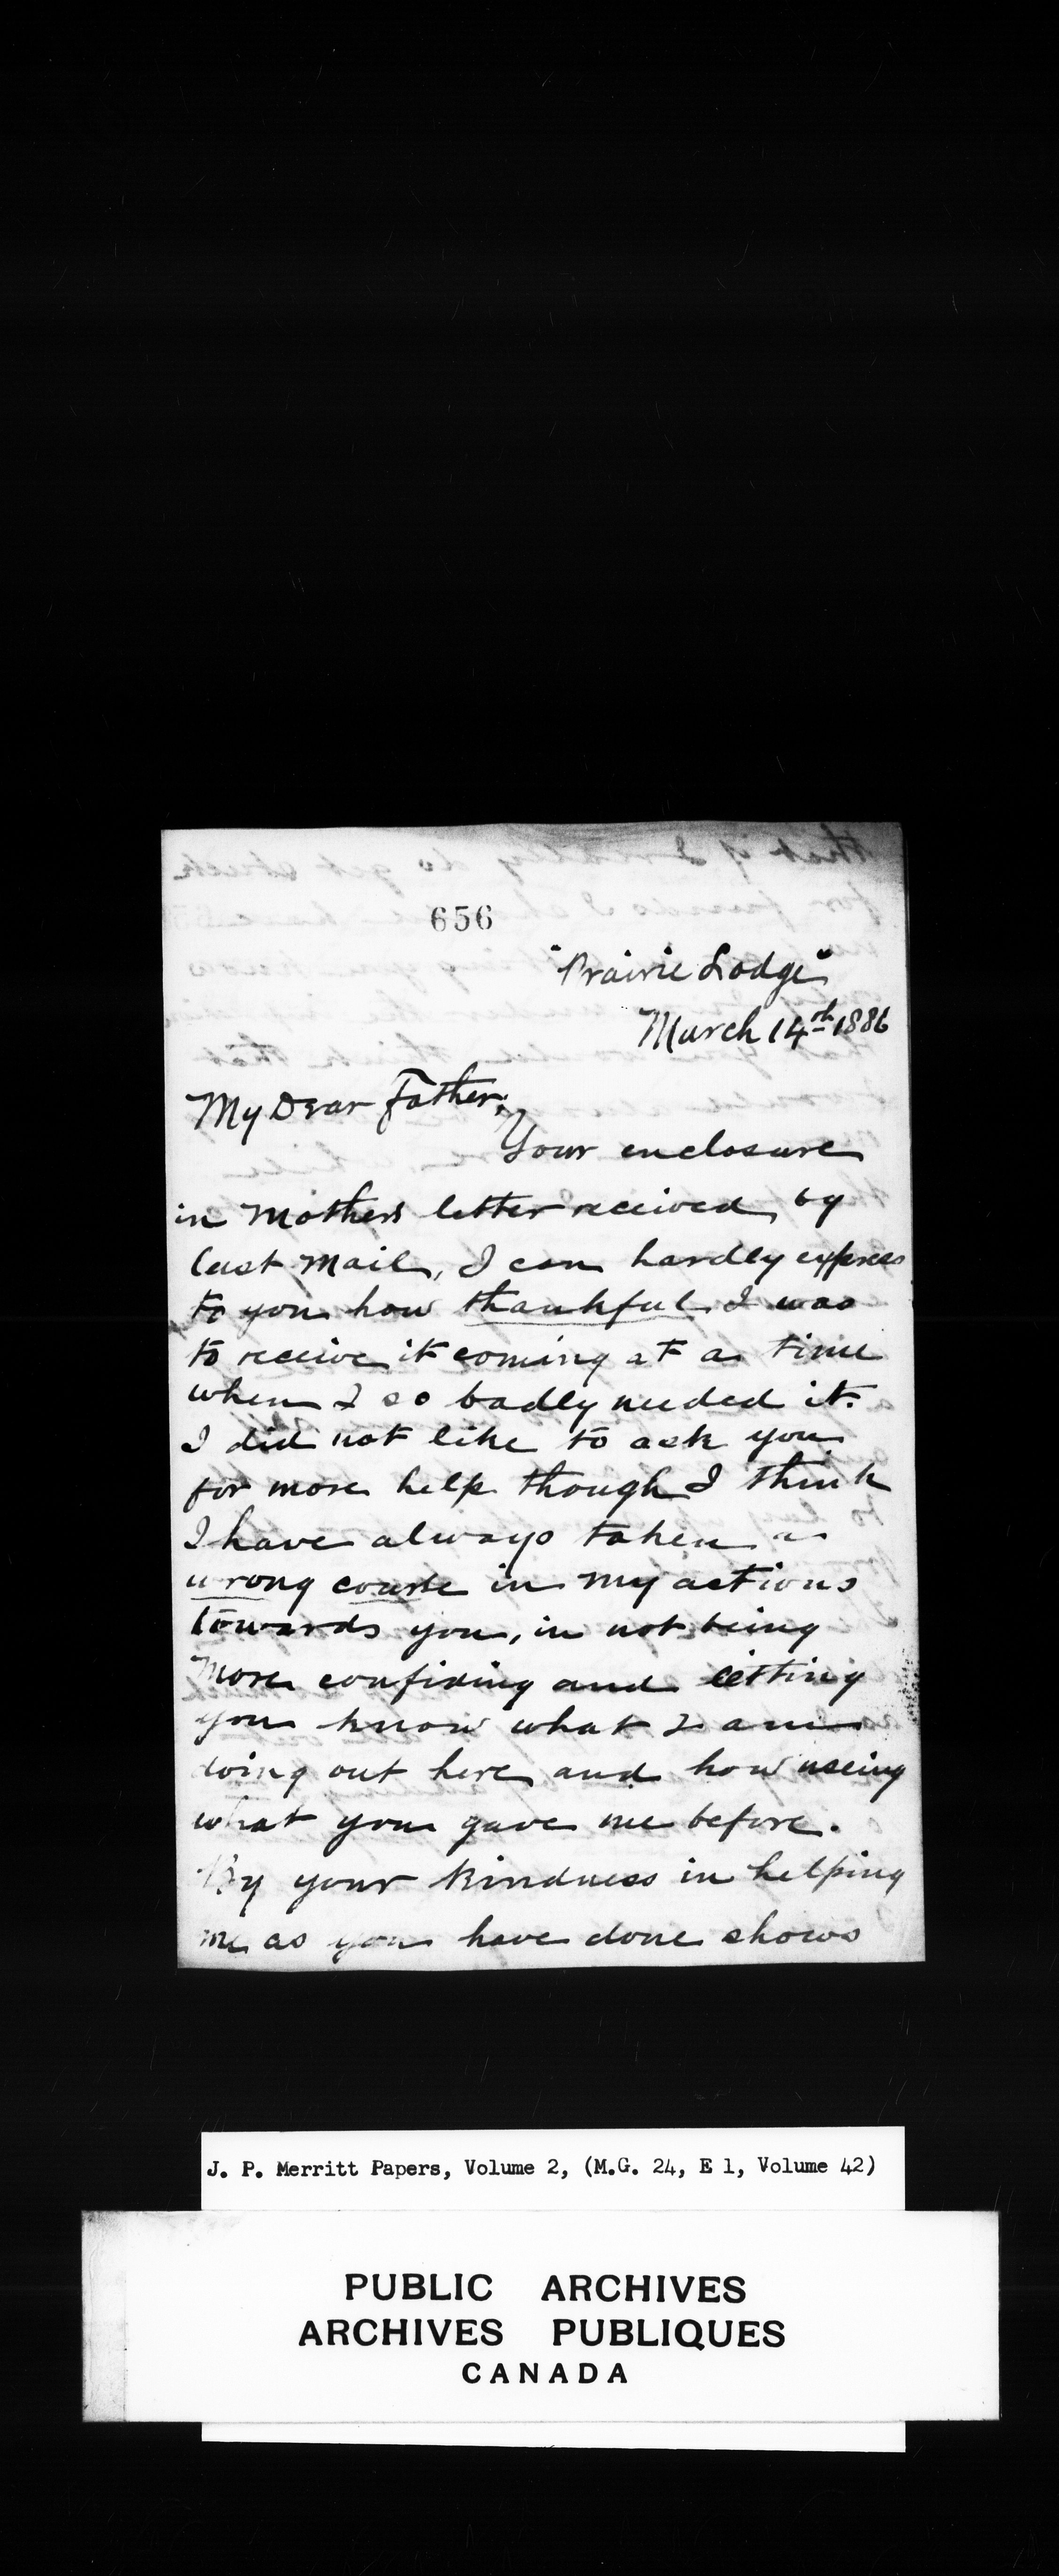 656
"Prairie Lodge"
March 14th 1886
My Dear Father,
Your enclosure
in Mothers letter received by
last mail, I can hardly express
to you how thankful I was
to receive it coming at a time
when I so badly needed it.
I did not like to ask you
for more help though I think
I have always taken a
wrong course in my actions
towards you, in not being
more confiding and letting
you know what I am
doing out here and how useing
what you gave me before.
By your kindness in helping
me as you have done shows
J. P. Merritt Papers, Volume 2, (M.G. 24, E 1, Volume 42)
PUBLIC ARCHIVES
ARCHIVES PUBLIQUES
CANADA